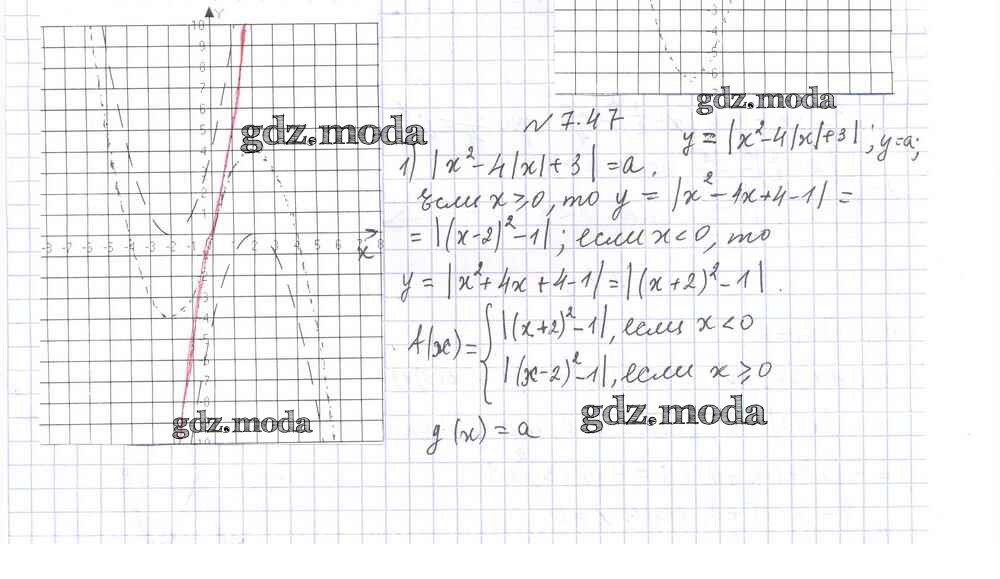 № 7.47
y = |x²-4|x|+3|; y=a;
1) |x²-4|x|+3| = a.
Если x ≥ 0, то y = |x²-4x+4-1| =
= |(x-2)²-1|; если x < 0, то
y = |x²+4x+4-1| = |(x+2)²-1|.
f(x) = { |(x+2)²-1|, если x < 0
|(x-2)²-1|, если x ≥ 0
g(x) = a
gdz.moda
gdz.moda
gdz.moda
gdz.moda